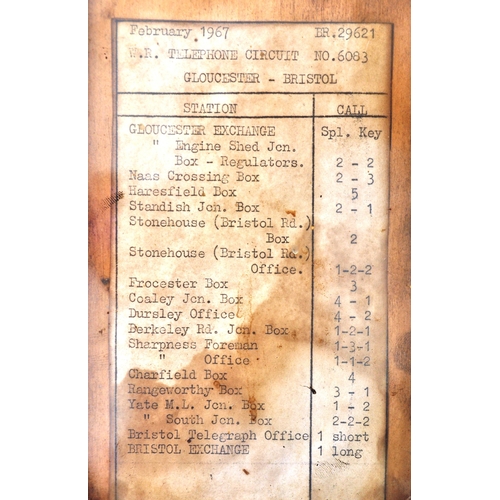 February 1967 BR.29621
W.R. TELEPHONE CIRCUIT NO.6083
GLOUCESTER - BRISTOL
STATION CALL
GLOUCESTER EXCHANGE Spl. Key
" Engine Shed Jcn.
Box - Regulators. 2 - 2
Naas Crossing Box 2 - 3
Haresfield Box 5
Standish Jcn. Box 2 - 1
Stonehouse (Bristol Rd.)
Box 2
Stonehouse (Bristol Rd.)
Office. 1-2-2
Frocester Box 3
Coaley Jcn. Box 4 - 1
Dursley Office 4 - 2
Berkeley Rd. Jcn. Box 1-2-1
Sharpness Foreman 1-3-1
" Office 1-1-2
Charfield Box 4
Rangeworthy Box 3 - 1
Yate M.L. Jcn. Box 1 - 2
" South Jcn. Box 2-2-2
Bristol Telegraph Office 1 short
BRISTOL EXCHANGE 1 long